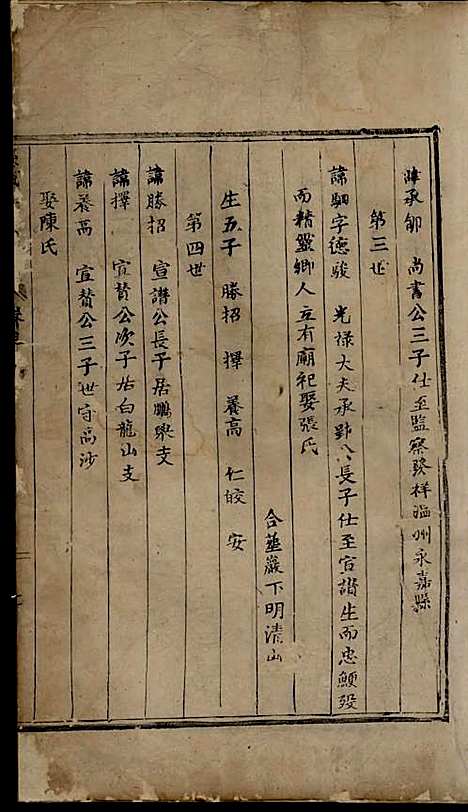 諱承卹　尚書公三子仕至監察發祥溫州永嘉縣
第三世
諱駟字德駿　光祿大夫承 公長子仕至宣諧生而忠鯁歿
而精靈鄉人立有廟祀娶張氏
合塟巖下明清山
生五子　勝招　擇　養高　仁皎　安
第四世
諱勝招　宣譜公長子居鵬 支
諱擇　宣贊公次子居白龍山支
諱養高　宣贊公三子世守高沙
娶陳氏